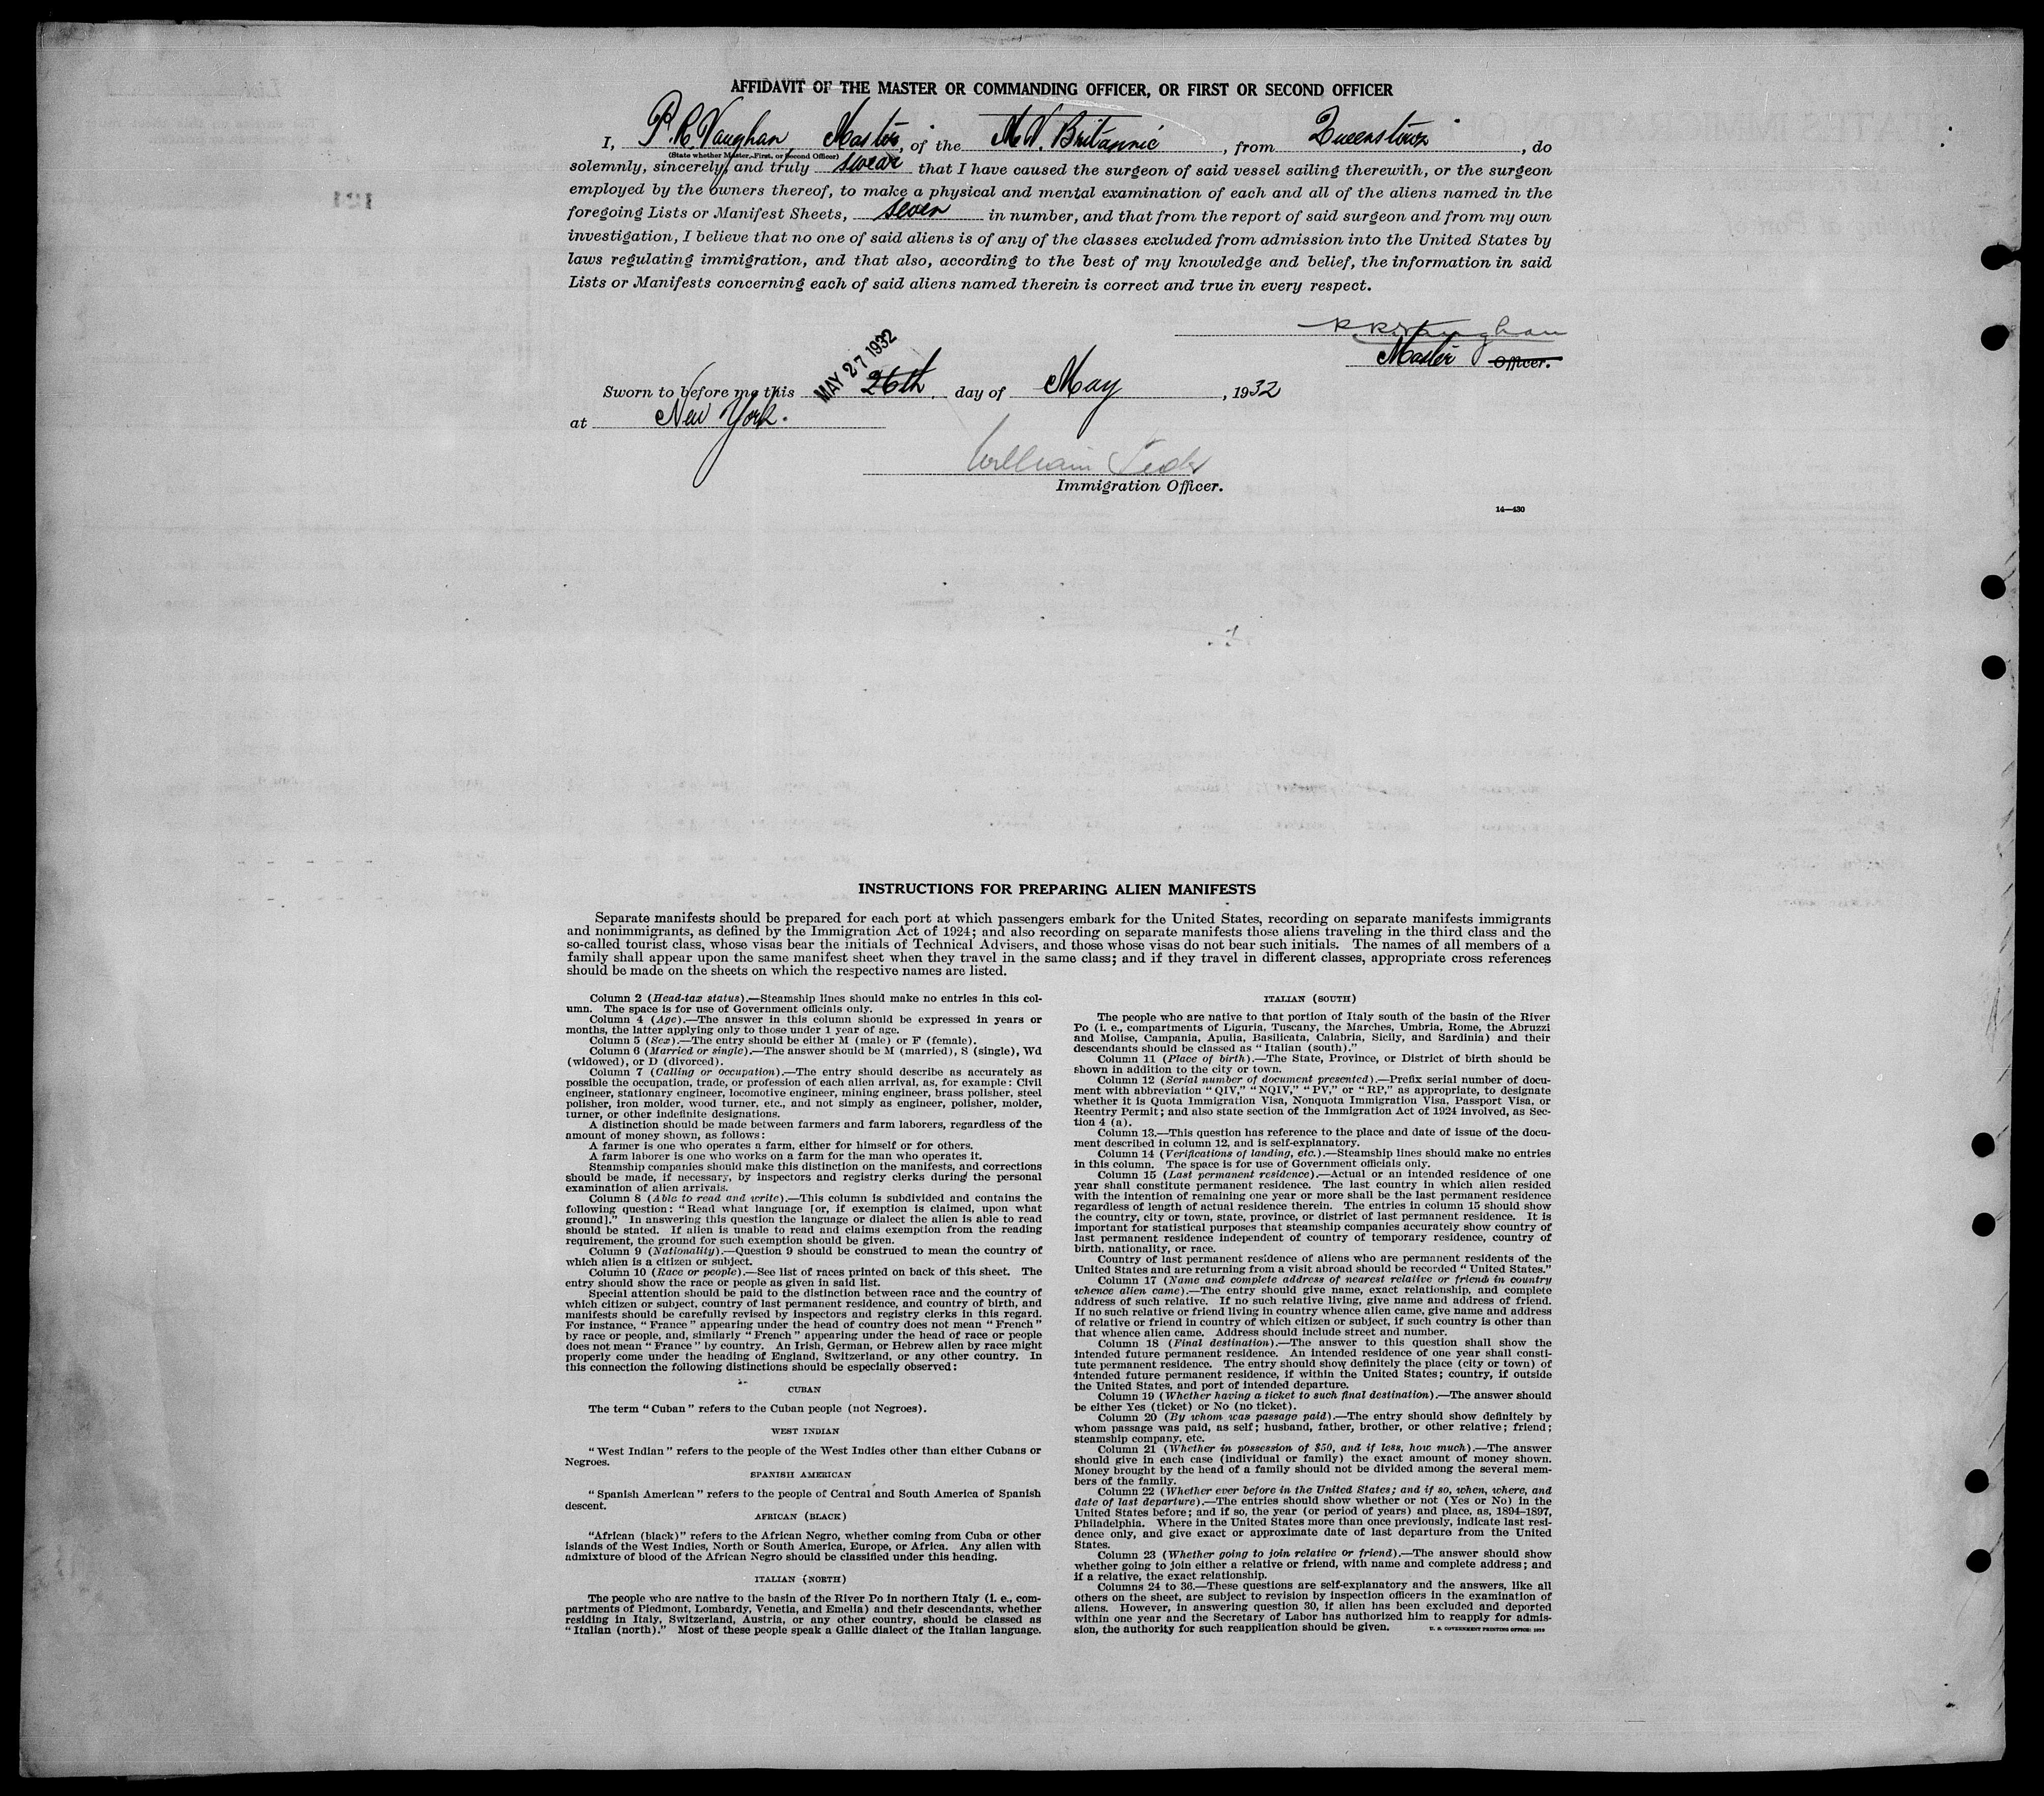 AFFIDAVIT OF THE MASTER OR COMMANDING OFFICER, OR FIRST OR SECOND OFFICER
I, P. R. Vaughan, Master, of the M.V. Britannic, from Queenstown, do
(State whether Master, First, or Second Officer)
solemnly, sincerely, and truly swear that I have caused the surgeon of said vessel sailing therewith, or the surgeon
employed by the owners thereof, to make a physical and mental examination of each and all of the aliens named in the
foregoing Lists or Manifest Sheets, seven in number, and that from the report of said surgeon and from my own
investigation, I believe that no one of said aliens is of any of the classes excluded from admission into the United States by
laws regulating immigration, and that also, according to the best of my knowledge and belief, the information in said
Lists or Manifests concerning each of said aliens named therein is correct and true in every respect.
Master Officer.
MAY 27 1932
Sworn to before me this 26th day of May, 1932
at New York.
William
Immigration Officer.
14—430
INSTRUCTIONS FOR PREPARING ALIEN MANIFESTS
Separate manifests should be prepared for each port at which passengers embark for the United States, recording on separate manifests immigrants
and nonimmigrants, as defined by the Immigration Act of 1924; and also recording on separate manifests those aliens traveling in the third class and the
so-called tourist class, whose visas bear the initials of Technical Advisers, and those whose visas do not bear such initials. The names of all members of a
family shall appear upon the same manifest sheet when they travel in the same class; and if they travel in different classes, appropriate cross references
should be made on the sheets on which the respective names are listed.
Column 2 (Head-tax status).—Steamship lines should make no entries in this col-
umn. The space is for use of Government officials only.
Column 4 (Age).—The answer in this column should be expressed in years or
months, the latter applying only to those under 1 year of age.
Column 5 (Sex).—The entry should be either M (male) or F (female).
Column 6 (Married or single).—The answer should be M (married), S (single), Wd
(widowed), or D (divorced).
Column 7 (Calling or occupation).—The entry should describe as accurately as
possible the occupation, trade, or profession of each alien arrival, as, for example: Civil
engineer, stationary engineer, locomotive engineer, mining engineer, brass polisher, steel
polisher, iron molder, wood turner, etc., and not simply as engineer, polisher, molder,
turner, or other indefinite designations.
A distinction should be made between farmers and farm laborers, regardless of the
amount of money shown, as follows:
A farmer is one who operates a farm, either for himself or for others.
A farm laborer is one who works on a farm for the man who operates it.
Steamship companies should make this distinction on the manifests, and corrections
should be made, if necessary, by inspectors and registry clerks during the personal
examination of alien arrivals.
Column 8 (Able to read and write).—This column is subdivided and contains the
following question: "Read what language [or, if exemption is claimed, upon what
ground]." In answering this question the language or dialect the alien is able to read
should be stated. If alien is unable to read and claims exemption from the reading
requirement, the ground for such exemption should be given.
Column 9 (Nationality).—Question 9 should be construed to mean the country of
which alien is a citizen or subject.
Column 10 (Race or people).—See list of races printed on back of this sheet. The
entry should show the race or people as given in said list.
Special attention should be paid to the distinction between race and the country of
which citizen or subject, country of last permanent residence, and country of birth, and
manifests should be carefully revised by inspectors and registry clerks in this regard.
For instance, "France" appearing under the head of country does not mean "French"
by race or people, and, similarly "French" appearing under the head of race or people
does not mean "France" by country. An Irish, German, or Hebrew alien by race might
properly come under the heading of England, Switzerland, or any other country. In
this connection the following distinctions should be especially observed:
CUBAN
The term "Cuban" refers to the Cuban people (not Negroes).
WEST INDIAN
"West Indian" refers to the people of the West Indies other than either Cubans or
Negroes.
SPANISH AMERICAN
"Spanish American" refers to the people of Central and South America of Spanish
descent.
AFRICAN (BLACK)
"African (black)" refers to the African Negro, whether coming from Cuba or other
islands of the West Indies, North or South America, Europe, or Africa. Any alien with
admixture of blood of the African Negro should be classified under this heading.
ITALIAN (NORTH)
The people who are native to the basin of the River Po in northern Italy (i. e., com-
partments of Piedmont, Lombardy, Venetia, and Emelia) and their descendants, whether
residing in Italy, Switzerland, Austria, or any other country, should be classed as
"Italian (north)." Most of these people speak a Gallic dialect of the Italian language.
ITALIAN (SOUTH)
The people who are native to that portion of Italy south of the basin of the River
Po (i. e., compartments of Liguria, Tuscany, the Marches, Umbria, Rome, the Abruzzi
and Molise, Campania, Apulia, Basilicata, Calabria, Sicily, and Sardinia) and their
descendants should be classed as "Italian (south)."
Column 11 (Place of birth).—The State, Province, or District of birth should be
shown in addition to the city or town.
Column 12 (Serial number of document presented).—Prefix serial number of docu-
ment with abbreviation "QIV," "NQIV," "PV," or "RP," as appropriate, to designate
whether it is Quota Immigration Visa, Nonquota Immigration Visa, Passport Visa, or
Reentry Permit; and also state section of the Immigration Act of 1924 involved, as Sec-
tion 4 (a).
Column 13.—This question has reference to the place and date of issue of the docu-
ment described in column 12, and is self-explanatory.
Column 14 (Verifications of landing, etc.).—Steamship lines should make no entries
in this column. The space is for use of Government officials only.
Column 15 (Last permanent residence).—Actual or an intended residence of one
year shall constitute permanent residence. The last country in which alien resided
with the intention of remaining one year or more shall be the last permanent residence
regardless of length of actual residence therein. The entries in column 15 should show
the country, city or town, state, province, or district of last permanent residence. It is
important for statistical purposes that steamship companies accurately show country of
last permanent residence independent of country of temporary residence, country of
birth, nationality, or race.
Country of last permanent residence of aliens who are permanent residents of the
United States and are returning from a visit abroad should be recorded "United States."
Column 17 (Name and complete address of nearest relative or friend in country
whence alien came).—The entry should give name, exact relationship, and complete
address of such relative. If no such relative living, give name and address of friend.
If no such relative or friend living in country whence alien came, give name and address
of relative or friend in country of which citizen or subject, if such country is other than
that whence alien came. Address should include street and number.
Column 18 (Final destination).—The answer to this question shall show the
intended future permanent residence. An intended residence of one year shall consti-
tute permanent residence. The entry should show definitely the place (city or town) of
intended future permanent residence, if within the United States; country, if outside
the United States, and port of intended departure.
Column 19 (Whether having a ticket to such final destination).—The answer should
be either Yes (ticket) or No (no ticket).
Column 20 (By whom was passage paid).—The entry should show definitely by
whom passage was paid, as self; husband, father, brother, or other relative; friend;
steamship company, etc.
Column 21 (Whether in possession of $50, and if less, how much).—The answer
should give in each case (individual or family) the exact amount of money shown.
Money brought by the head of a family should not be divided among the several mem-
bers of the family.
Column 22 (Whether ever before in the United States; and if so, when, where, and
date of last departure).—The entries should show whether or not (Yes or No) in the
United States before; and if so, the year (or period of years) and place, as, 1894–1897,
Philadelphia. Where in the United States more than once previously, indicate last resi-
dence only, and give exact or approximate date of last departure from the United
States.
Column 23 (Whether going to join relative or friend).—The answer should show
whether going to join either a relative or friend, with name and complete address; and
if a relative, the exact relationship.
Columns 24 to 36.—These questions are self-explanatory and the answers, like all
others on the sheet, are subject to revision by inspection officers in the examination of
aliens. However, in answering question 30, if alien has been excluded and deported
within one year and the Secretary of Labor has authorized him to reapply for admis-
sion, the authority for such reapplication should be given.
U. S. GOVERNMENT PRINTING OFFICE: